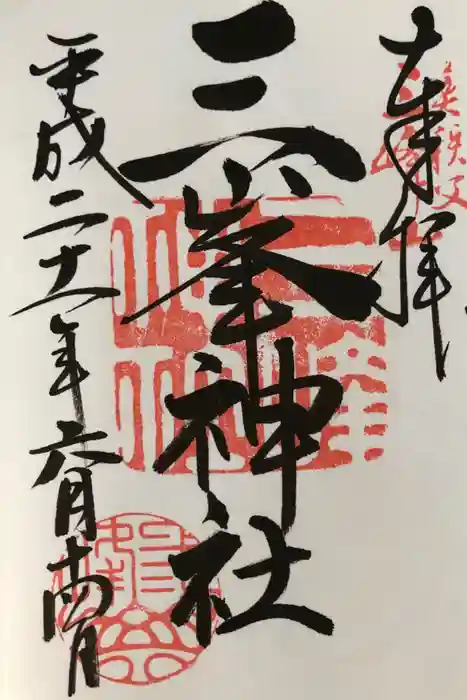 奉拝
奥秩父
三峯神社
平成二十一年六月十四日